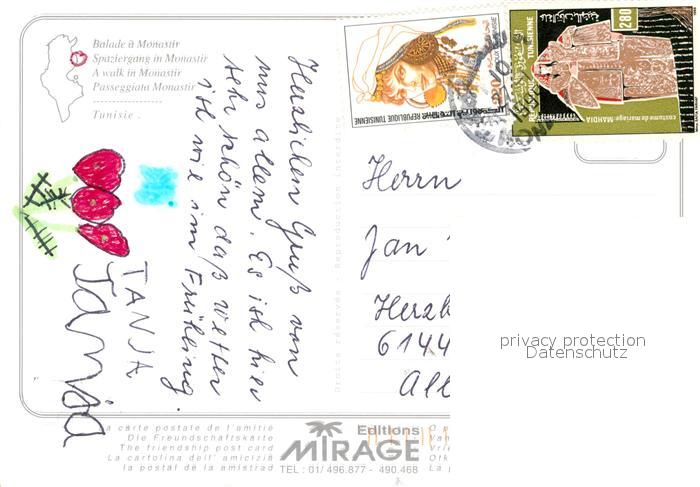 Balade à Monastir
Spaziergang in Monastir
A walk in Monastir
Passeggiata Monastir
Tunisie.
Herzlichen Gruß von
uns allem. Es ist hier
sehr schön daß wetter
ist wie im Frühling.
TANJA
Tanja
REPUBLIQUE TUNISIENNE
280
REPUBLIQUE TUNISIENNE
costume de mariage-MAHDIA
Herrn
Jan
Herzb
6144
All
privacy protection
Datenschutz
Droits réservés - Reproduction interdite
La carte postale de l'amitié
Die Freundschaftskarte
The friendship post card
La cartolina dell' amicizia
la postal de la amistrad
Editions
MIRAGE
TEL : 01/ 496.877 - 490.468